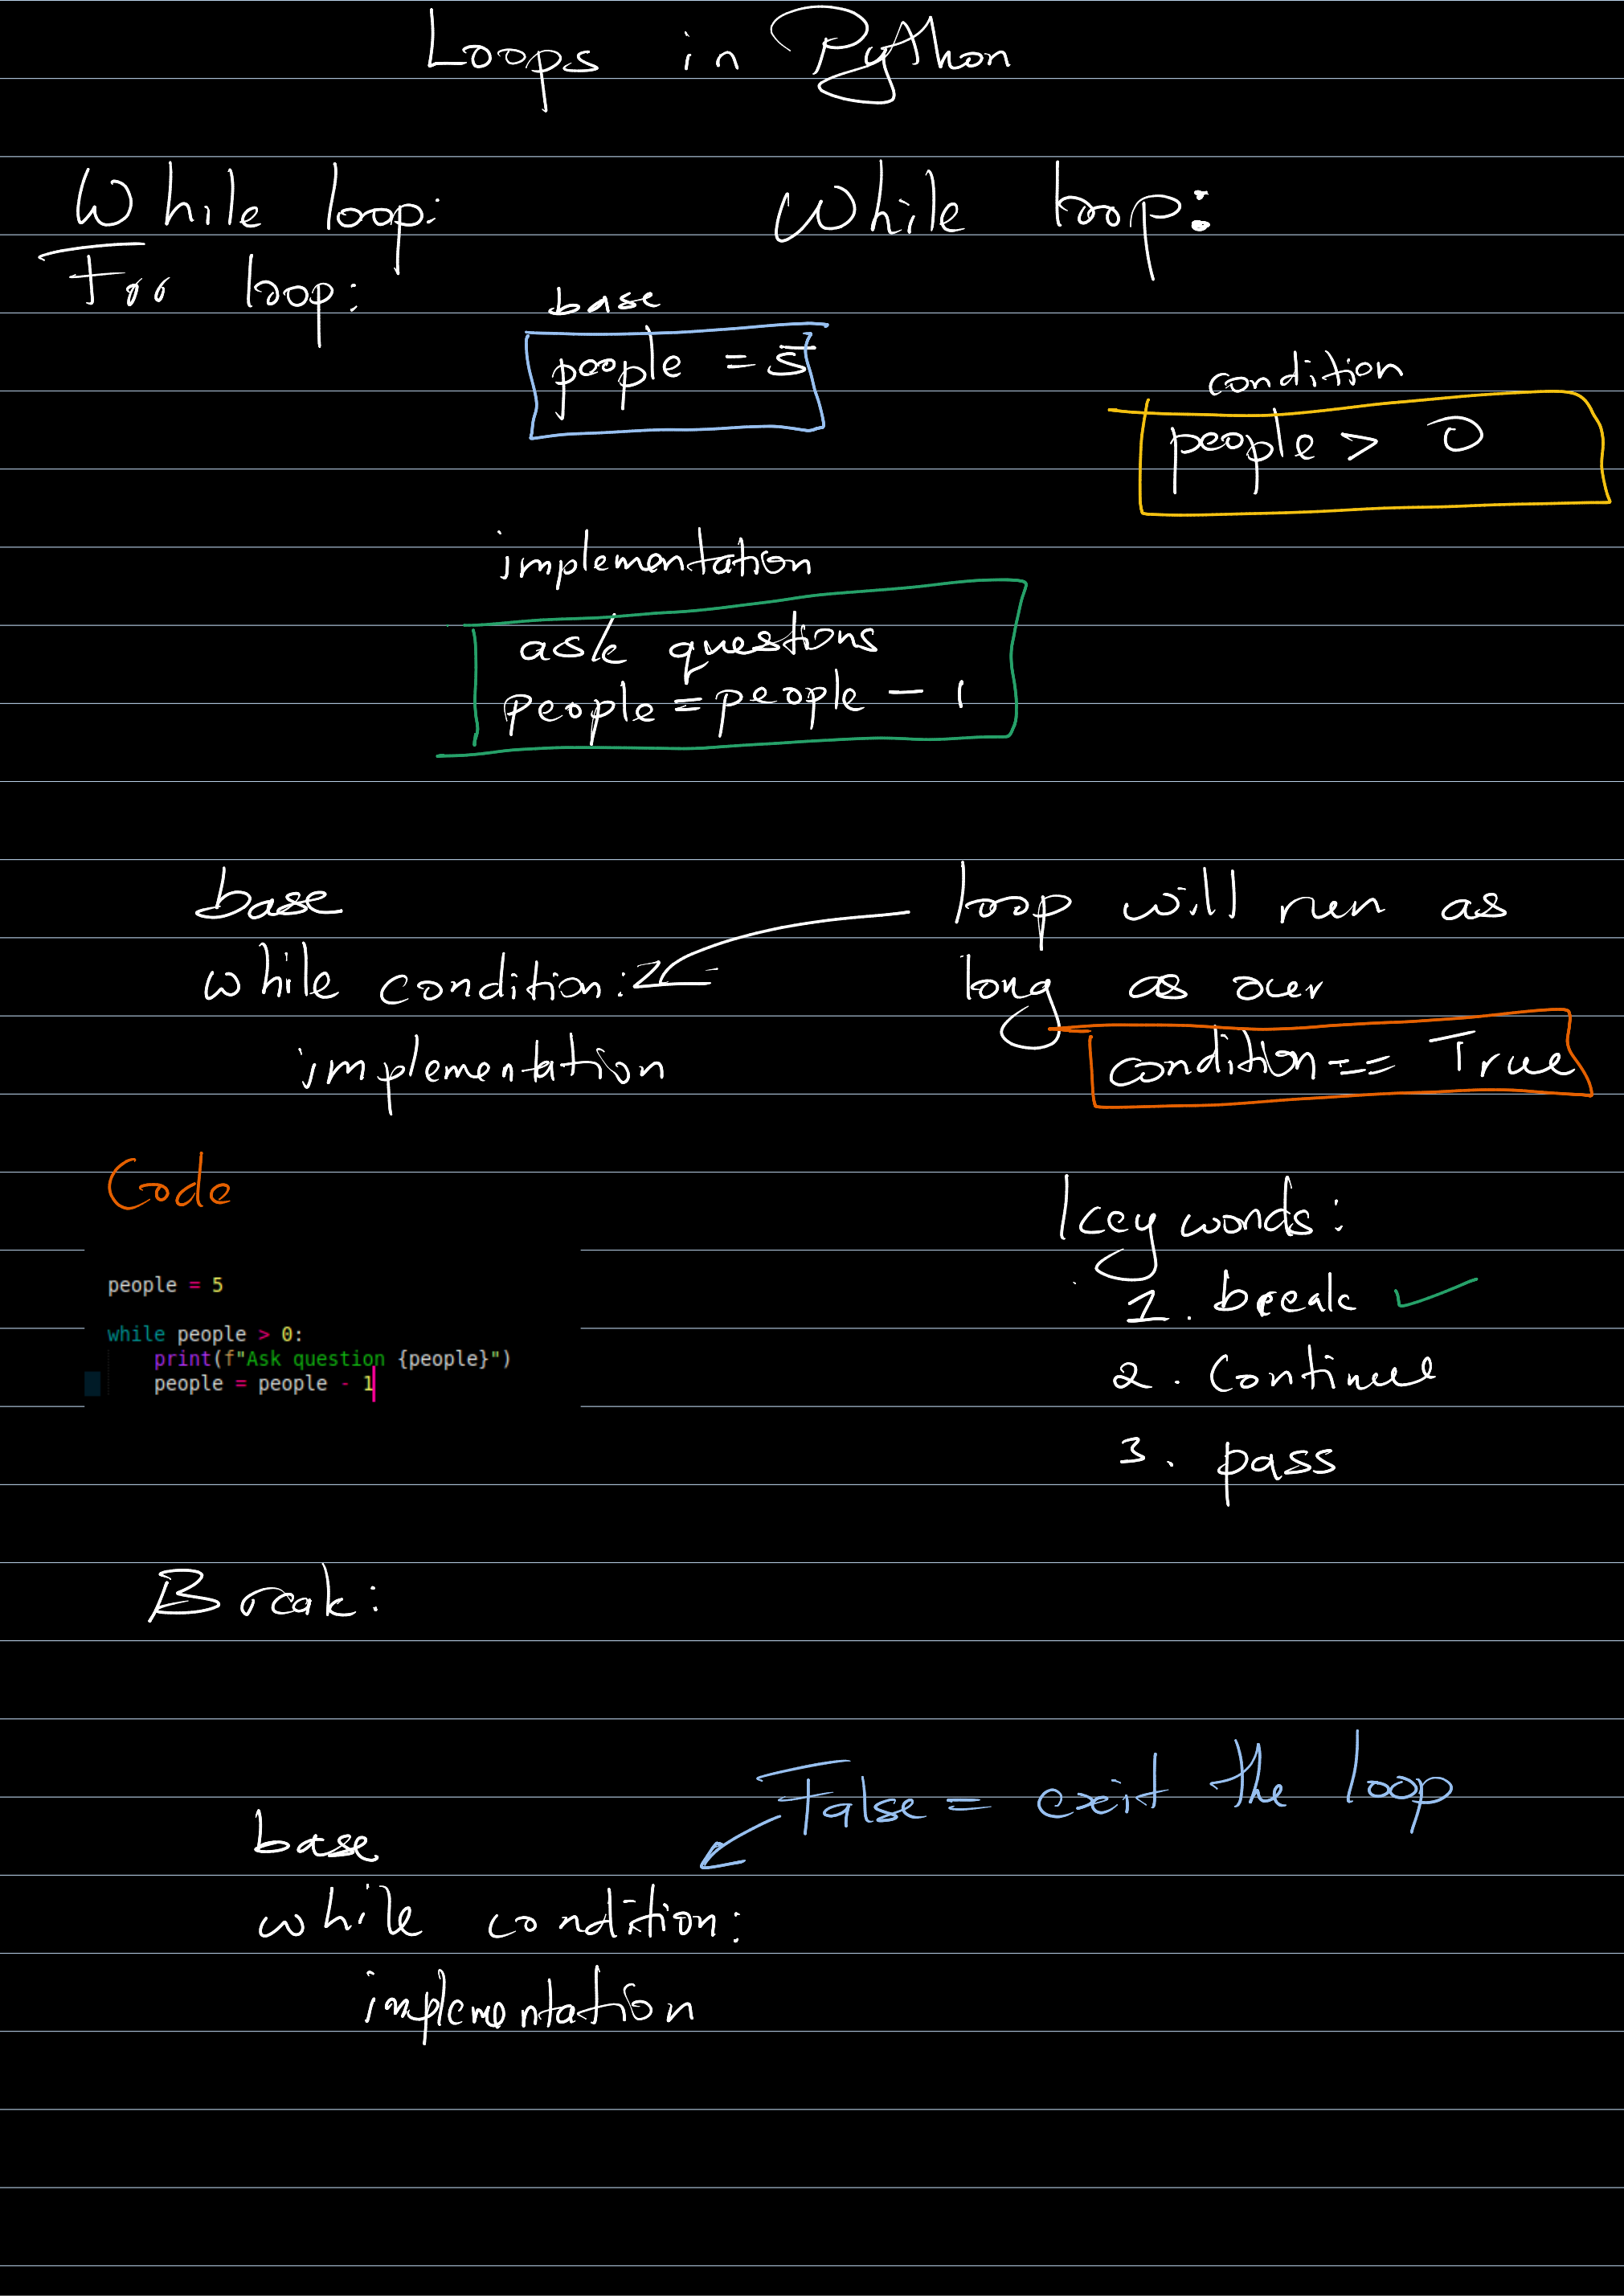 Loops in Python
While loop:
For loop:
While loop:
base
people = 5
condition
people > 0
implementation
ask questions
people = people - 1
base
while condition:
implementation
loop will run as
long as our
condition == True
Code
people = 5
while people > 0:
print(f"Ask question {people}")
people = people - 1
Key words:
1. break ✓
2. Continue
3. pass
Break:
False = exit the loop
base
while condition:
implementation